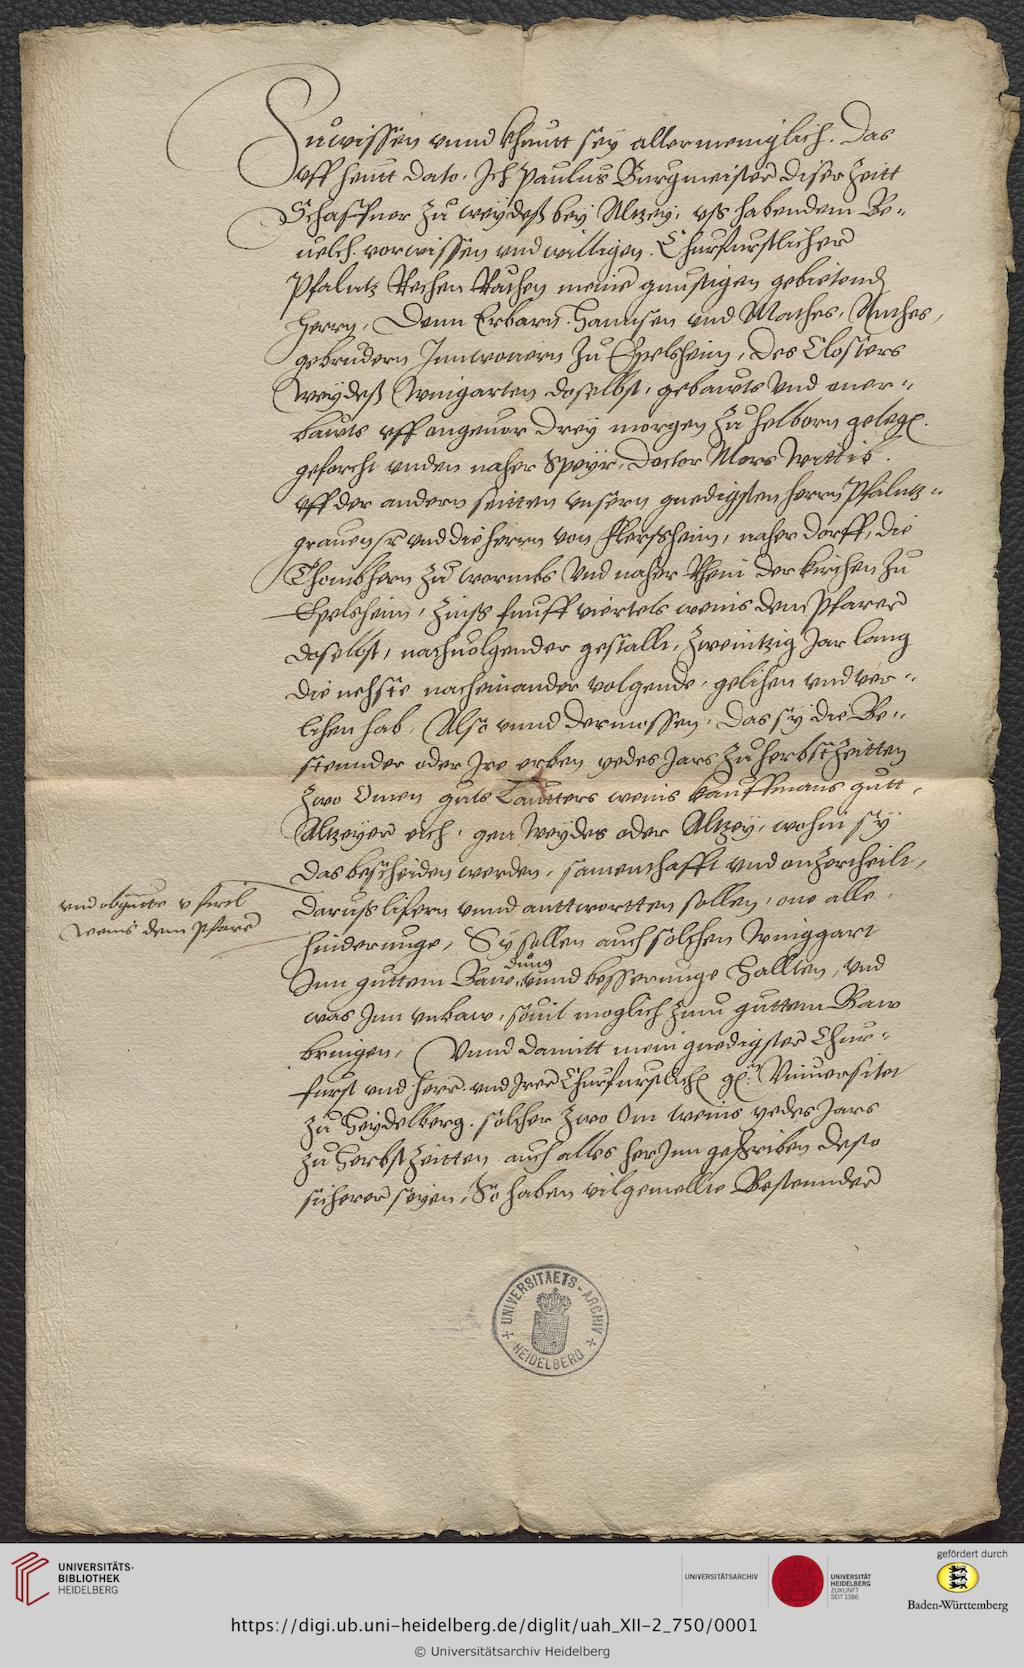 Zuwissen vnnd khuntt sey allermeniglich. Das
vff heutt dato. Ich Paulus Burgmeister diser Zeitt
Schaffner zu weydeß bey Altzey, vß habendem Be-
uelch. vorwissen vnd willigen. Churfurstlicher
Pfalntz Rechen Räthen meine gunstigen gebietend
herrn, Denn Erbarn. Hannsen vnd Mathes,
gebrudern Innwonern zu Epelsheim, des Closters
Weydeß Wingarten daselbst, gebauts vnd oner-
bauts vff ongeuor drey morgen zu helborn geleg.
geforcht vnden naher Speyr, Doctor Mors Wittib.
vff der andern seitten vnsern gnedigsten herrn Pfalntz-
grauen vnd die herrn von Flerßheim, naher dorff, die
Thombhern zu wormbs vnd naher Rhein der kirchen zu
Epelsheim, Zinß funff viertels weins dem Pfarer
daselbst, nachuolgender gestallt, Zweintzig Jar lang
die nehste nacheinander volgende, gelihen vnd ver-
lihen hab, Also vnnd dermossen, das sy die Be-
stennder oder Ire erben yedes Jars zu herbstzeitten
zwo Omen guts Lautters weins kauffmans gutt,
Altzeyer eich, gen Weydes oder Altzey, wohin sy
das bescheiden werden, samenthafft vnd onzertheilt,
vnd obgute v firtel
Weins dem Pfarer
daruß lifern vnnd anttwortten sollen, one alle
hinderunge, Sy sollen auch solchen Winggart
dung
Inn guttem Baw, vnnd besserunge Hallten, vnd
was Inn vnbaw, souil moglich zum guttem Baw
bringen, Vnnd damitt mein gnedigster Chur-
furst vnd Herr. vnd Irer Churfurstlich g. Vniuersitet
zu Heydelberg. solcher zwo Om weins yedes Jars
zu Herbstzeitten auch alles her Inn geschriben desto
sicherer seyen, So haben vilgemellte Bestennder
UNIVERSITAETS-ARCHIV
HEIDELBERG
UNIVERSITÄTS-
BIBLIOTHEK
HEIDELBERG
UNIVERSITÄTSARCHIV
UNIVERSITÄT
HEIDELBERG
ZUKUNFT
SEIT 1386
gefördert durch
Baden-Württemberg
https://digi.ub.uni-heidelberg.de/diglit/uah_XII-2_750/0001
© Universitätsarchiv Heidelberg